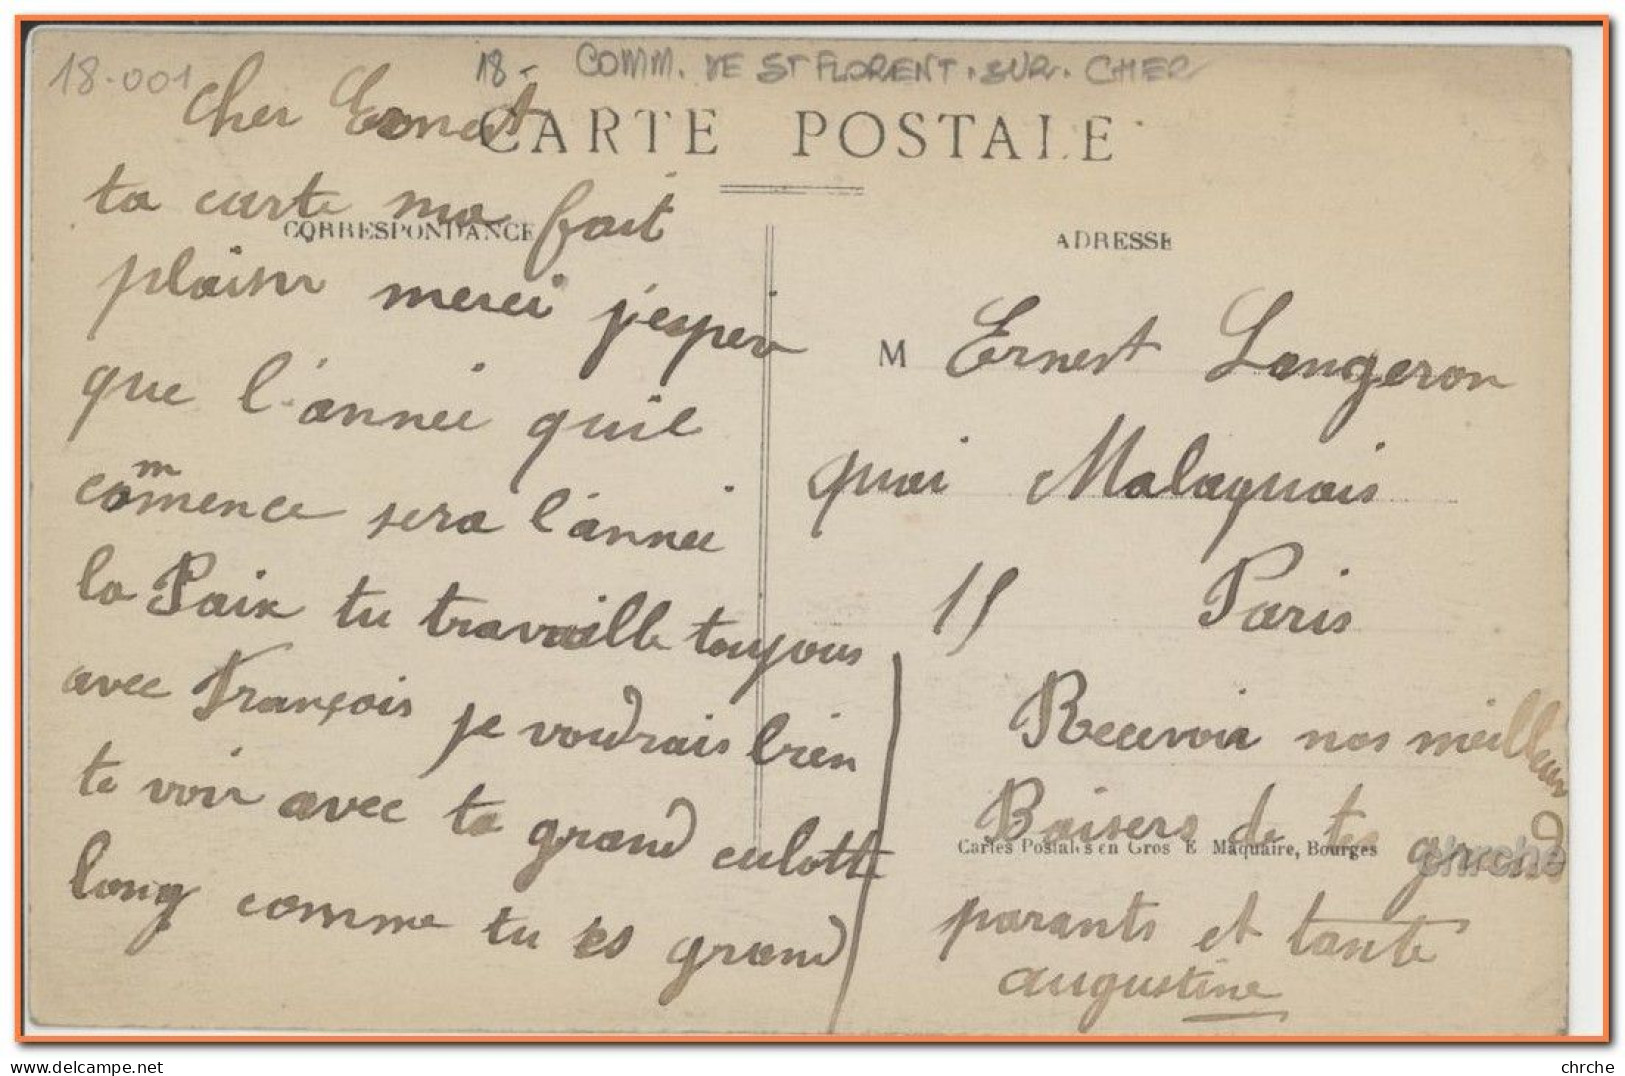 18-001
18- COMM. DE ST FLORENT.SUR.CHER
CARTE POSTALE
CORRESPONDANCE
cher Ernest
ta carte ma fait
plaisir merci j'esper
que l'année quil
commence sera l'année
la Paix tu travaille toujours
avec François je voudrais bien
te voir avec ta grand culotte
long comme tu es grand
ADRESSE
M Ernest Langeron
quai Malaquais
15 Paris
Recevoir nos meilleur
Baisers de tes grand
Cartes Postales en Gros E Maquaire, Bourges
chrche
parants et tante
augustine
chrche